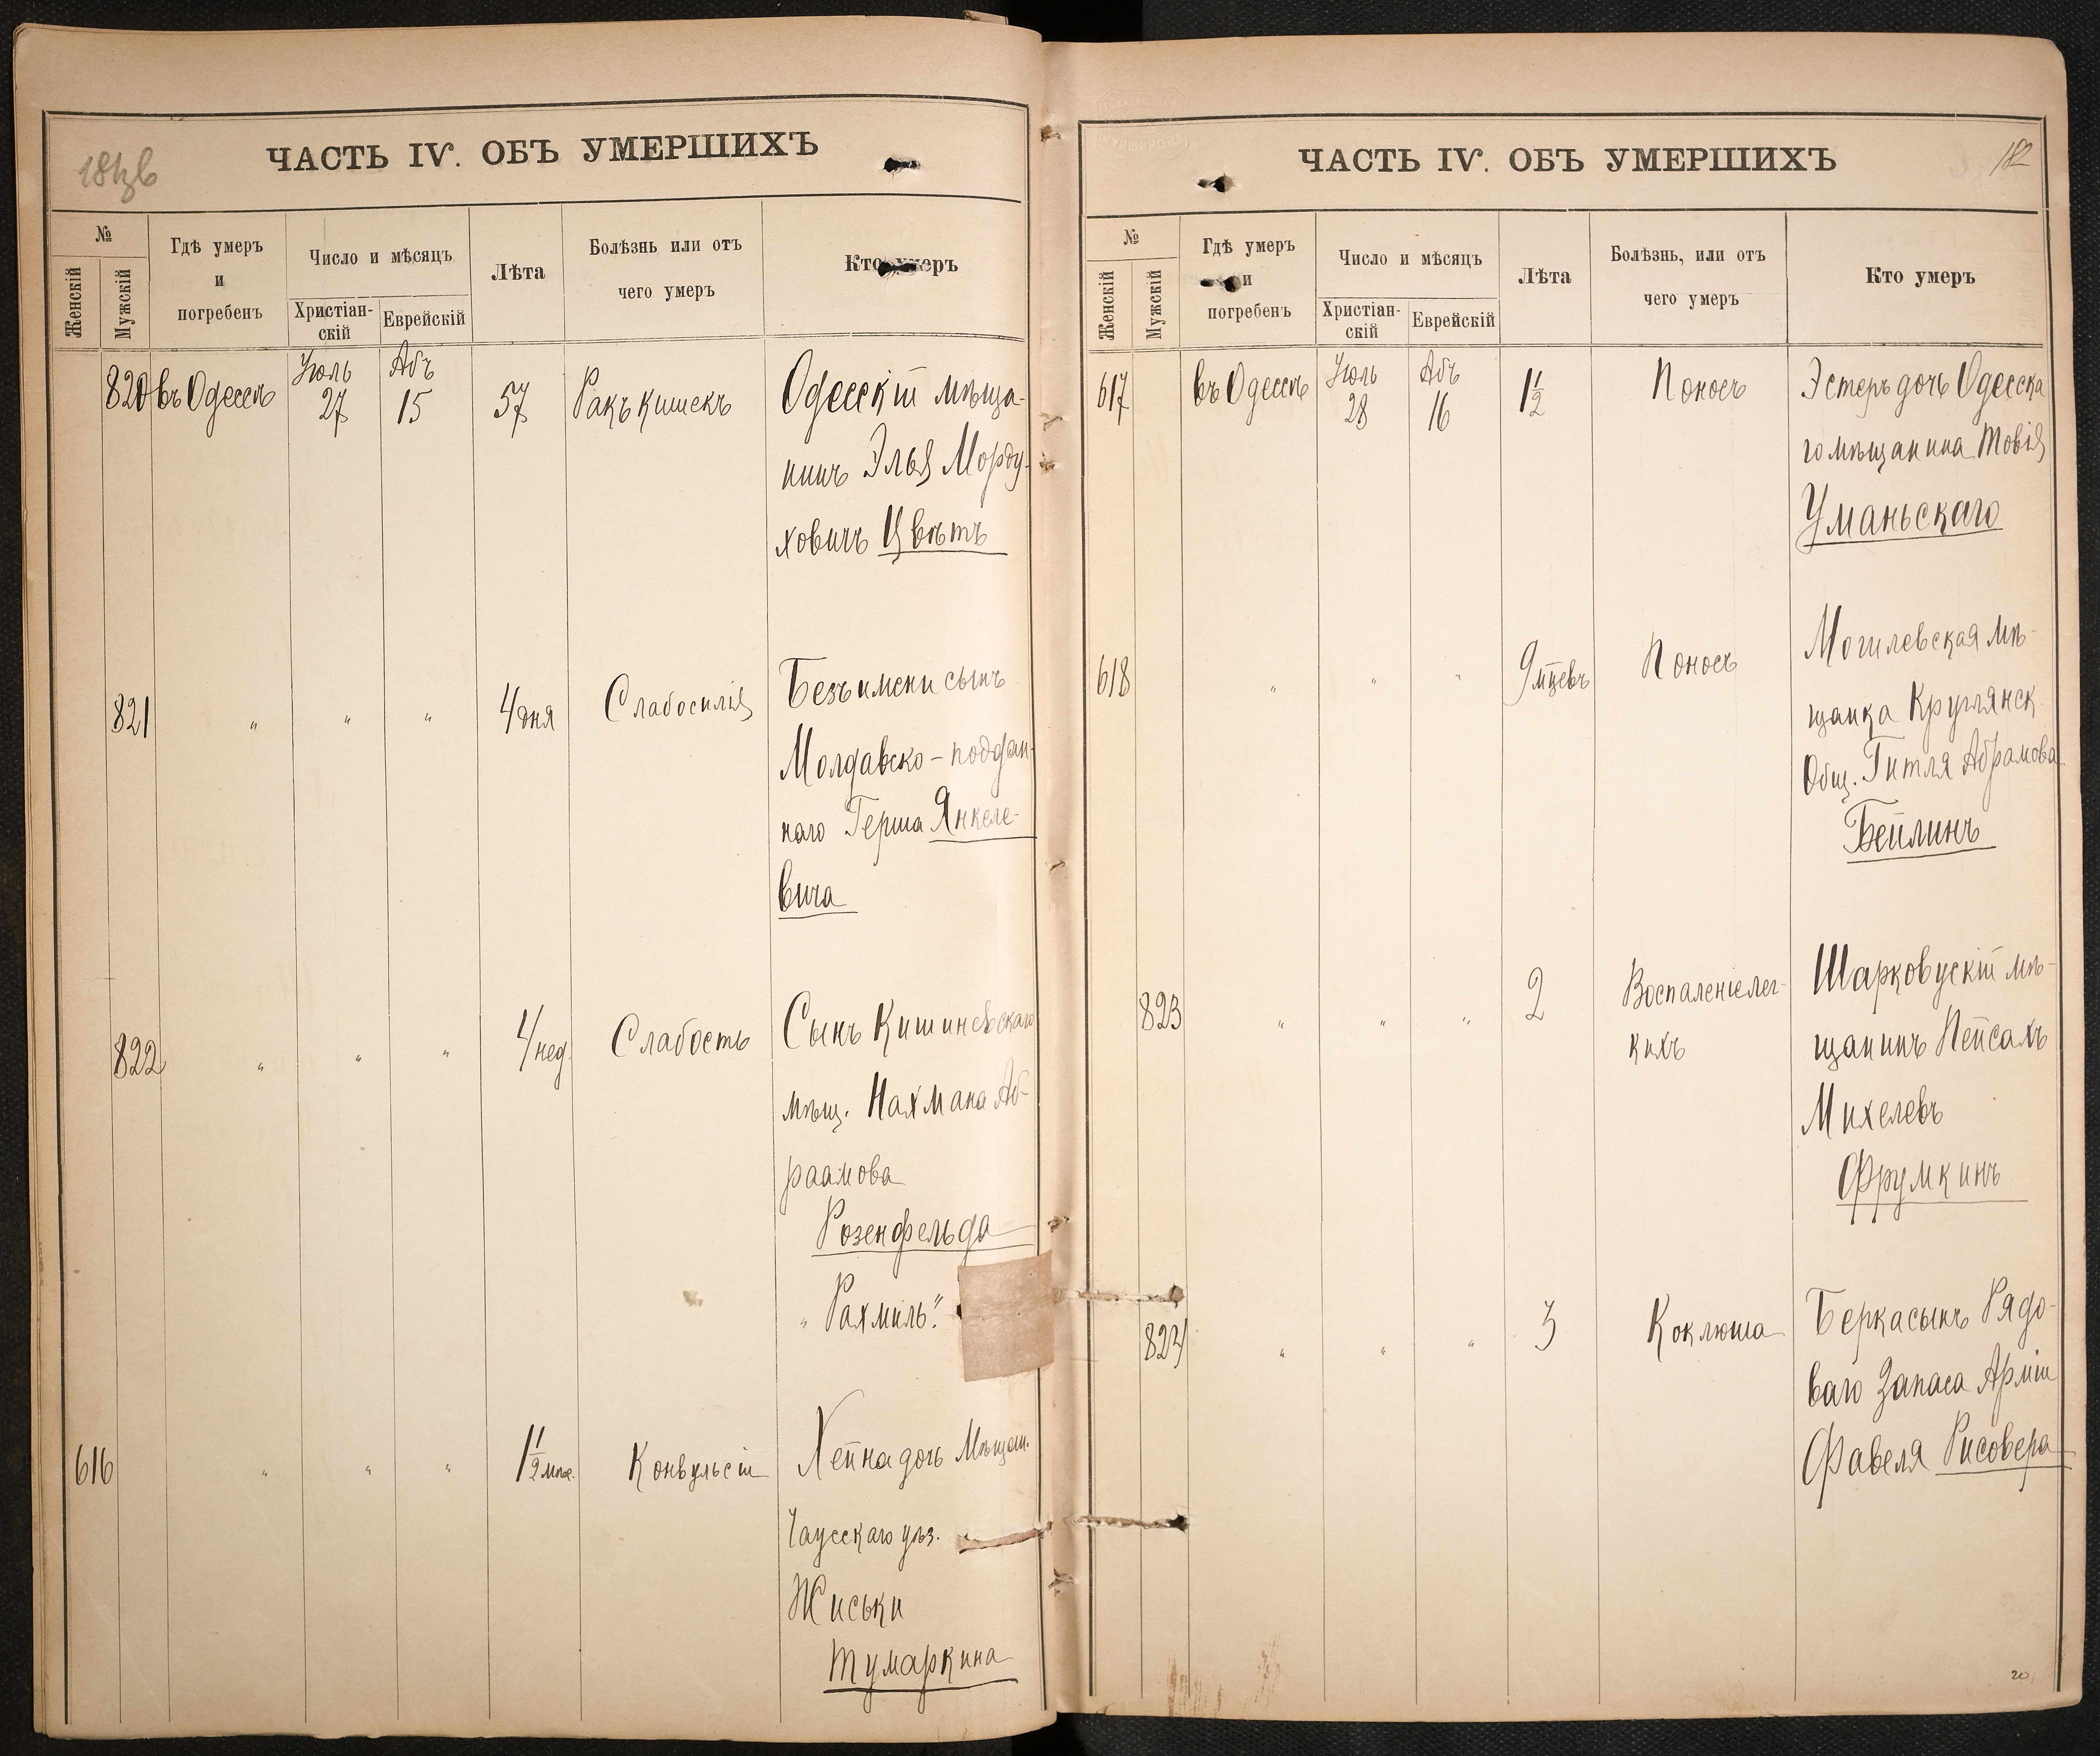 ЧАСТЬ IV. ОБЪ УМЕРШИХЪ
№
Женскій
Мужскій
Гдѣ умеръ
и
погребенъ
Число и мѣсяцъ
Христіан-
скій
Еврейскій
Лѣта
Болѣзнь или отъ
чего умеръ
Кто умеръ
820 въ Одессѣ Іюль 27 Абъ 15 57 Ракъ кишекъ Одесскій мѣща-
нинъ Элья Морду-
ховичъ Цвѣтъ
821 " " " 4 дня Слабосилія Безъ имени сынъ
Молдавско-поддан-
наго Герша Янкеле-
вича
822 " " " 4 нед. Слабость Сынъ Кишиневскаго
мѣщ. Нахмана Аб-
раамова
Розенфельда
"Рахмиль".
616 " " " 1 1/2 Конвульсіи Хейна дочь Мѣщан.
Чаусскаго уѣз.
Жиськи
Тумаркина
ЧАСТЬ IV. ОБЪ УМЕРШИХЪ
182
№
Женскій
Мужскій
Гдѣ умеръ
и
погребенъ
Число и мѣсяцъ
Христіан-
скій
Еврейскій
Лѣта
Болѣзнь, или отъ
чего умеръ
Кто умеръ
617 въ Одессѣ Іюль 28 Абъ 16 1 1/2 Поносъ Эстеръ дочь Одесска
го мѣщанина Товія
Уманьскаго
618 " " " 9 мцевъ Поносъ Могилевская мѣ-
щанка Круглянск.
Общ. Гитля Абрамова
Бейлинъ
823 " " " 2 Воспаленіе лег- Шарковускій мѣ-
кихъ щанинъ Пейсахъ
Михелевъ
Фрумкинъ
824 " " " 3 Коклюша Берка сынъ Рядо-
ваго Запаса Арміи
Фавеля Рисовера
20